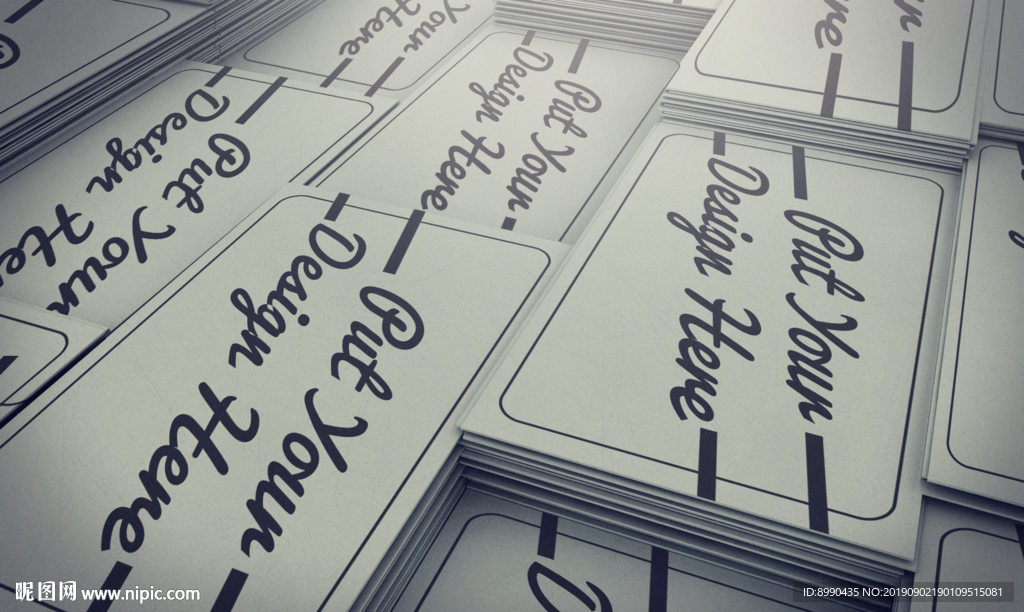 your
Here
Put Your
Design Here
Put Your
Design Here
Put Your
Design Here
Put Your
Design Here
昵图网 www.nipic.com
ID:8990435 NO:20190902190109515081